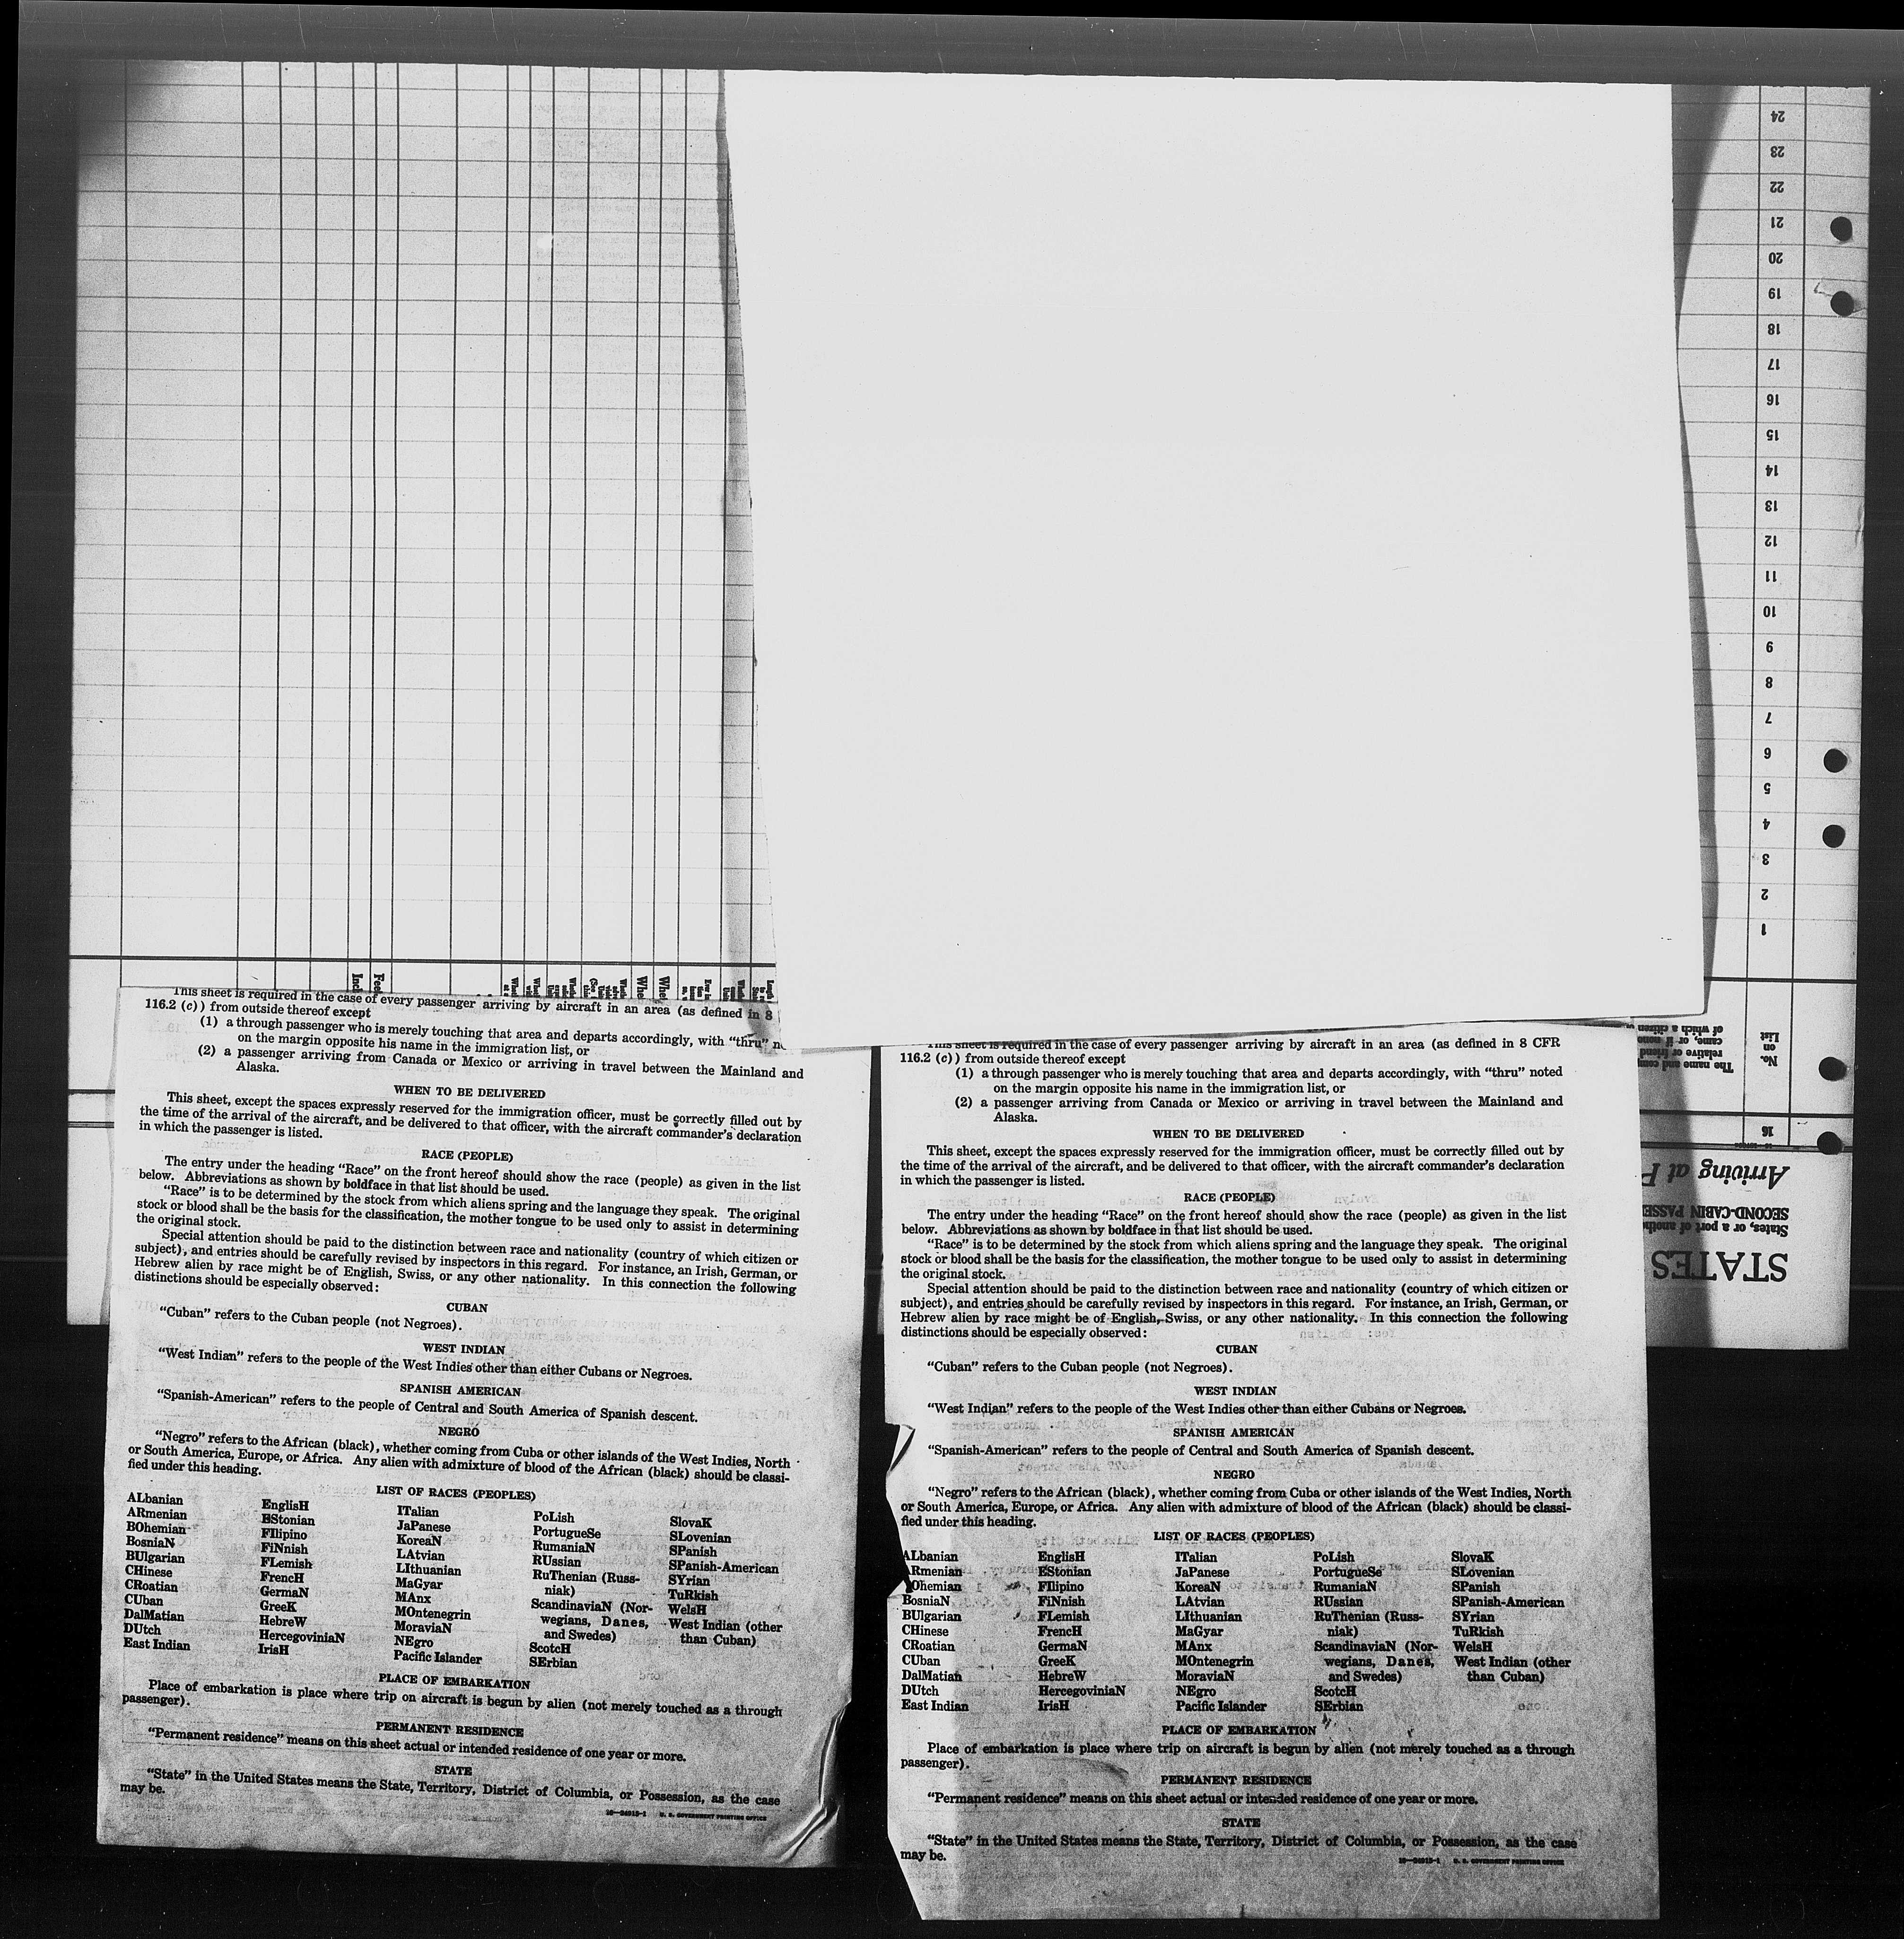 This sheet is required in the case of every passenger arriving by aircraft in an area (as defined in 8
116.2 (c)) from outside thereof except
(1) a through passenger who is merely touching that area and departs accordingly, with “thru”
on the margin opposite his name in the immigration list, or
(2) a passenger arriving from Canada or Mexico or arriving in travel between the Mainland and
Alaska.
WHEN TO BE DELIVERED
This sheet, except the spaces expressly reserved for the immigration officer, must be correctly filled out by
the time of the arrival of the aircraft, and be delivered to that officer, with the aircraft commander’s declaration
in which the passenger is listed.
RACE (PEOPLE)
The entry under the heading “Race” on the front hereof should show the race (people) as given in the list
below. Abbreviations as shown by boldface in that list should be used.
“Race” is to be determined by the stock from which aliens spring and the language they speak. The original
stock or blood shall be the basis for the classification, the mother tongue to be used only to assist in determining
the original stock.
Special attention should be paid to the distinction between race and nationality (country of which citizen or
subject), and entries should be carefully revised by inspectors in this regard. For instance, an Irish, German, or
Hebrew alien by race might be of English, Swiss, or any other nationality. In this connection the following
distinctions should be especially observed:
CUBAN
“Cuban” refers to the Cuban people (not Negroes).
WEST INDIAN
“West Indian” refers to the people of the West Indies other than either Cubans or Negroes.
SPANISH AMERICAN
“Spanish-American” refers to the people of Central and South America of Spanish descent.
NEGRO
“Negro” refers to the African (black), whether coming from Cuba or other islands of the West Indies, North
or South America, Europe, or Africa. Any alien with admixture of blood of the African (black) should be classi-
fied under this heading.
LIST OF RACES (PEOPLES)
ALbanian
ARmenian
BOhemian
BosniaN
BUlgarian
CHinese
CRoatian
CUban
DalMatian
DUtch
East Indian
EnglisH
EStonian
FIlipino
FiNnish
FLemish
FrencH
GermaN
GreeK
HebreW
HercegoviniaN
IrisH
ITalian
JaPanese
KoreaN
LAtvian
LIthuanian
MaGyar
MAnx
MOntenegrin
MoraviaN
NEgro
Pacific Islander
PoLish
PortugueSe
RumaniaN
RUssian
RuThenian (Russ-
niak)
ScandinaviaN (Nor-
wegians, Danes,
and Swedes)
ScotcH
SErbian
SlovaK
SLovenian
SPanish
SPanish-American
SYrian
TuRkish
WelsH
West Indian (other
than Cuban)
PLACE OF EMBARKATION
Place of embarkation is place where trip on aircraft is begun by alien (not merely touched as a through
passenger).
PERMANENT RESIDENCE
“Permanent residence” means on this sheet actual or intended residence of one year or more.
STATE
“State” in the United States means the State, Territory, District of Columbia, or Possession, as the case
may be.
16—24913-1 U. S. GOVERNMENT PRINTING OFFICE
This sheet is required in the case of every passenger arriving by aircraft in an area (as defined in 8 CFR
116.2 (c)) from outside thereof except
(1) a through passenger who is merely touching that area and departs accordingly, with “thru” noted
on the margin opposite his name in the immigration list, or
(2) a passenger arriving from Canada or Mexico or arriving in travel between the Mainland and
Alaska.
WHEN TO BE DELIVERED
This sheet, except the spaces expressly reserved for the immigration officer, must be correctly filled out by
the time of the arrival of the aircraft, and be delivered to that officer, with the aircraft commander’s declaration
in which the passenger is listed.
RACE (PEOPLE)
The entry under the heading “Race” on the front hereof should show the race (people) as given in the list
below. Abbreviations as shown by boldface in that list should be used.
“Race” is to be determined by the stock from which aliens spring and the language they speak. The original
stock or blood shall be the basis for the classification, the mother tongue to be used only to assist in determining
the original stock.
Special attention should be paid to the distinction between race and nationality (country of which citizen or
subject), and entries should be carefully revised by inspectors in this regard. For instance, an Irish, German, or
Hebrew alien by race might be of English, Swiss, or any other nationality. In this connection the following
distinctions should be especially observed:
CUBAN
“Cuban” refers to the Cuban people (not Negroes).
WEST INDIAN
“West Indian” refers to the people of the West Indies other than either Cubans or Negroes.
SPANISH AMERICAN
“Spanish-American” refers to the people of Central and South America of Spanish descent.
NEGRO
“Negro” refers to the African (black), whether coming from Cuba or other islands of the West Indies, North
or South America, Europe, or Africa. Any alien with admixture of blood of the African (black) should be classi-
fied under this heading.
LIST OF RACES (PEOPLES)
ALbanian
ARmenian
BOhemian
BosniaN
BUlgarian
CHinese
CRoatian
CUban
DalMatian
DUtch
East Indian
EnglisH
EStonian
FIlipino
FiNnish
FLemish
FrencH
GermaN
GreeK
HebreW
HercegoviniaN
IrisH
ITalian
JaPanese
KoreaN
LAtvian
LIthuanian
MaGyar
MAnx
MOntenegrin
MoraviaN
NEgro
Pacific Islander
PoLish
PortugueSe
RumaniaN
RUssian
RuThenian (Russ-
niak)
ScandinaviaN (Nor-
wegians, Danes,
and Swedes)
ScotcH
SErbian
SlovaK
SLovenian
SPanish
SPanish-American
SYrian
TuRkish
WelsH
West Indian (other
than Cuban)
PLACE OF EMBARKATION
Place of embarkation is place where trip on aircraft is begun by alien (not merely touched as a through
passenger).
PERMANENT RESIDENCE
“Permanent residence” means on this sheet actual or intended residence of one year or more.
STATE
“State” in the United States means the State, Territory, District of Columbia, or Possession, as the case
may be.
16—24913-1 U. S. GOVERNMENT PRINTING OFFICE
STATES
States, or a port of
SECOND-CABIN
Arriving at
16
No.
on
List
The name and
relative or friend
came, or if none
of which a citizen
1
2
3
4
5
6
7
8
9
10
11
12
13
14
15
16
17
18
19
20
21
22
23
24